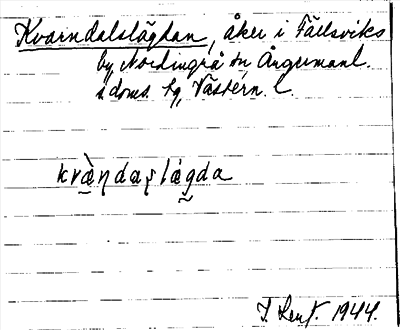 Kvarndalslägdan, åker i Fällsviks
by, Nordingrå sn, Ångermanl.
s doms. hg, Västern. l.
kvæ̀ṇdaṣlǽgda
1944.